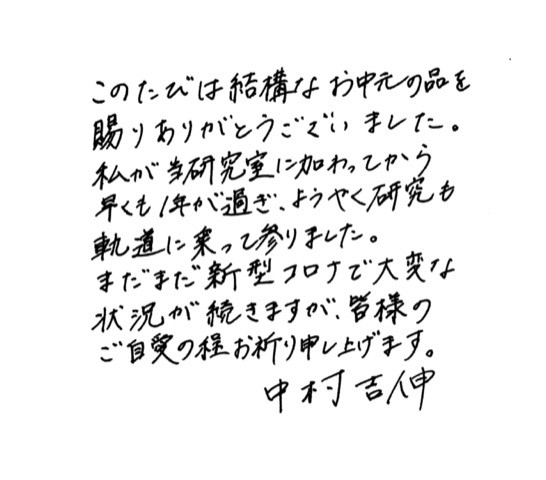 このたびは結構なお中元の品を
賜りありがとうございました。
私が当研究室に加わってから
早くも1年が過ぎ、ようやく研究も
軌道に乗って参りました。
まだまだ新型コロナで大変な
状況が続きますが、皆様の
ご自愛の程お祈り申し上げます。
中村吉伸